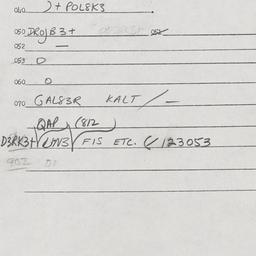 040 ) + POL8K3
050 DROJB3+
052 —
053 0
060 0
070 GAL83R KALT / —
QAP (812
D3RK3+ FIS ETC. 123053